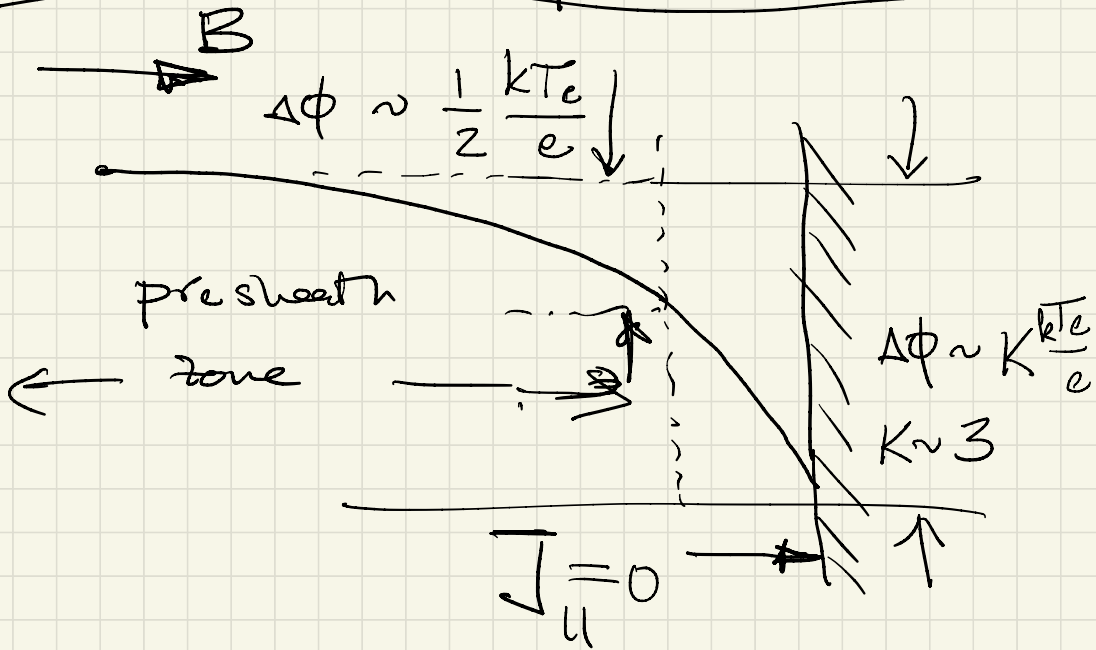 B
Δϕ ~ 1/2 kTe/e
presheath
zone
Δϕ ~ K kTe/e
K ~ 3
J∥ = 0